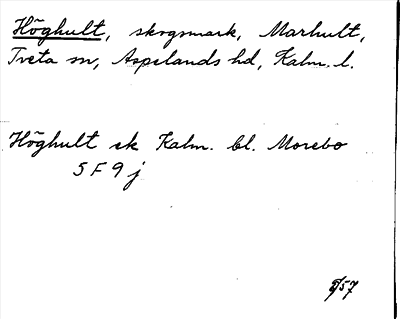 Höghult, skogsmark, Marhult,
Tveta sn, Aspelands hd, Kalm. l.
Höghult ek Kalm. bl. Morebo
5 F 9 j
/57